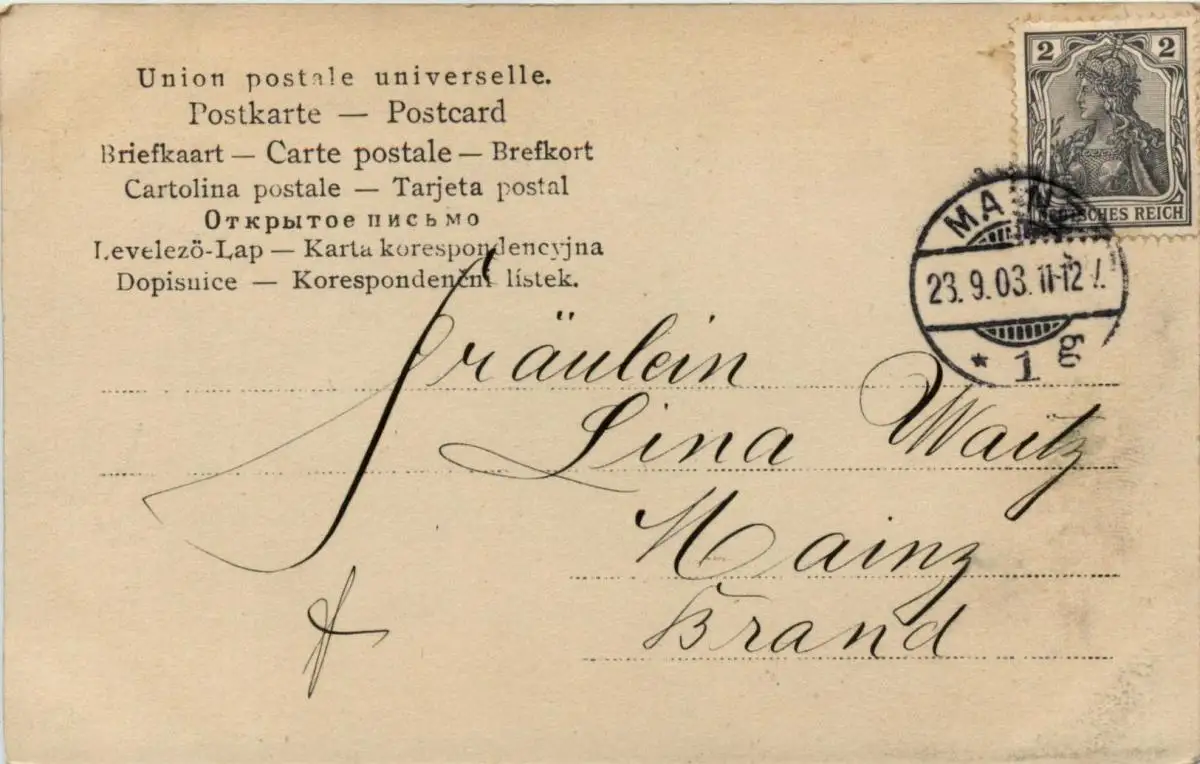 Union postale universelle.
Postkarte — Postcard
Briefkaart — Carte postale — Brefkort
Cartolina postale — Tarjeta postal
Открытое письмо
Levelező-Lap — Karta korespondencyjna
Dopisnice — Korespondenční lístek.
2 2
DEUTSCHES REICH
MAINZ
23.9.03. 11-12
* 1
Fräulein
Lina Waitz
Mainz
Brand